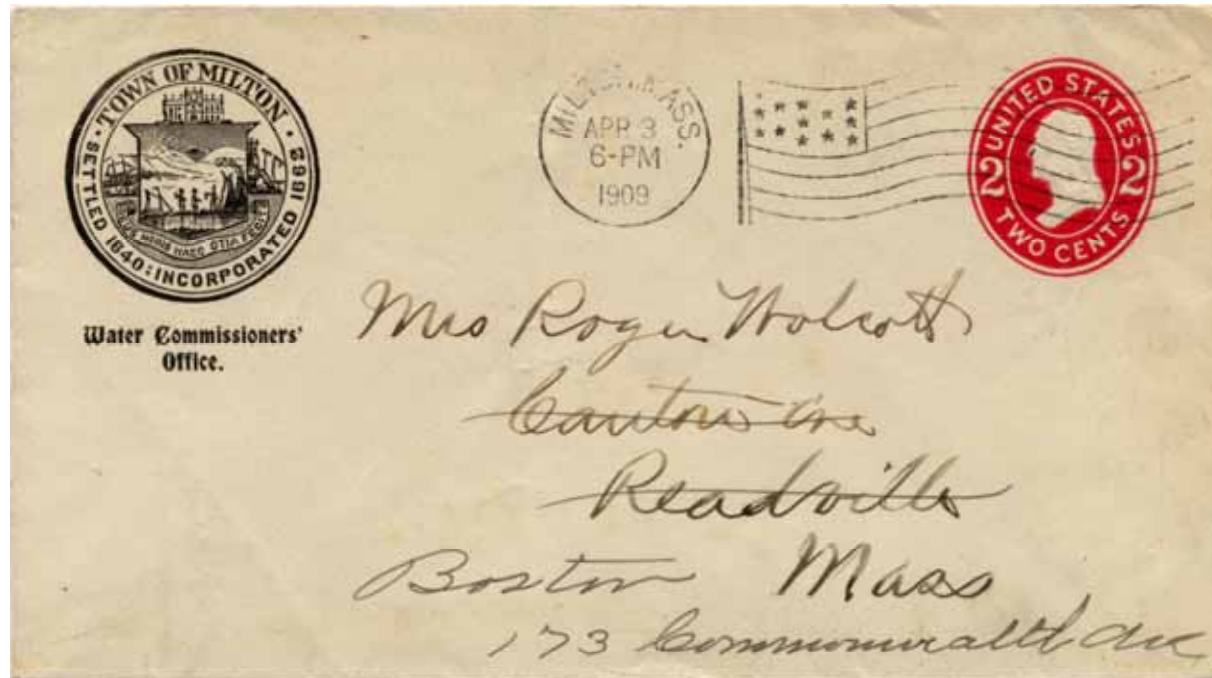 · TOWN OF MILTON ·
SETTLED 1640 : INCORPORATED 1662
DEUS NOBIS HAEC OTIA FECIT
Water Commissioners'
Office.
MILTON, MASS.
APR 3
6-PM
1909
UNITED STATES
2 2
TWO CENTS
Mrs Roger Wolcott
Canton Ave
Readville
Boston Mass
173 Commonwealth Ave